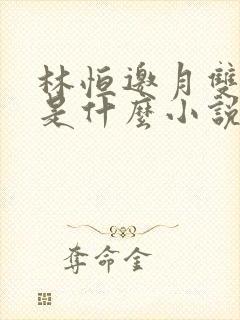 林恒邀月雙
是什麼小說
奪命金